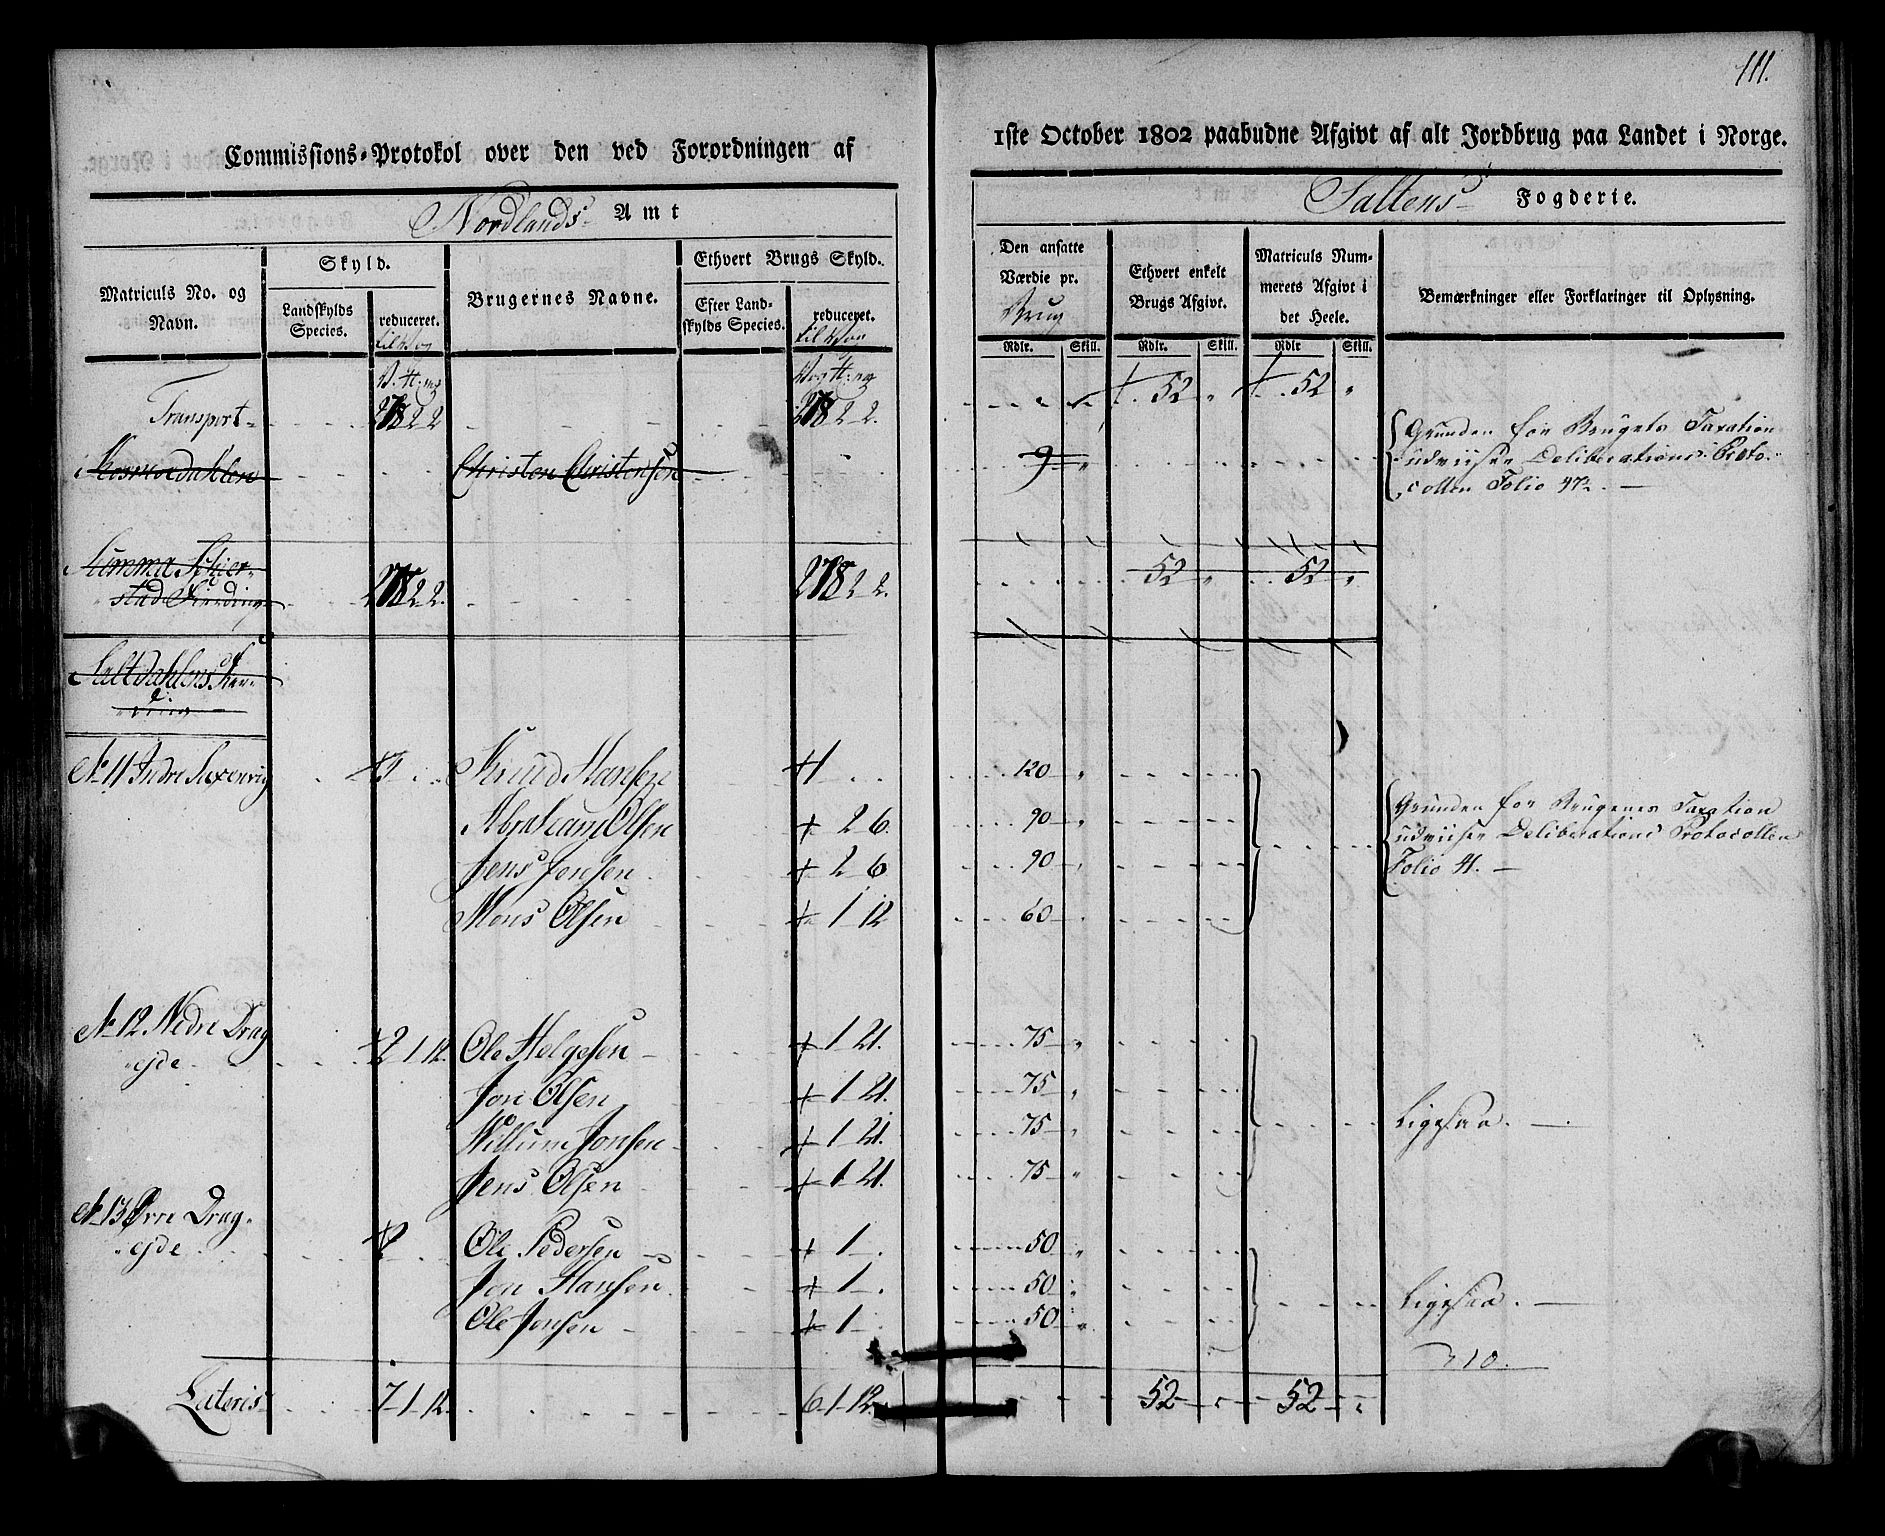 111.
Commissions-Protokol over den ved Forordningen af
1ste October 1802 paabudne Afgivt af alt Jordbrug paa Landet i Norge.
Nordlands Amt
Saltens Fogderie.
Matriculs No. og Navn.
Skyld.
Landskylds Species.
reduceret. til Wog
Brugernes Navne.
Ethvert Brugs Skyld.
Efter Landskylds Species.
reduceret. til Wog
Den ansatte Værdie pr. Brug
Ethvert enkelt Brugs Afgivt.
Matriculs Nummerets Afgivt i det Heele.
Bemærkninger eller Forklaringer til Oplysning.
Rdlr. Skill. Rdlr. Skill. Rdlr Skill.
Transport 2 2 52 52
Christen Christensen 9
Grunden for Brugets Taxation
udviiser Deliberations Proto-
collen Folio 47.
Summa Schier-
stad Fierding 2 2 52 52
Saltdahlens Fier-
ding
No 11 Indre Saxenvig Knud Hansen 120
Abraham Olsen 2 6 90
Jens Jonsen 2 6 90
Mons Olsen 1 12 60
Grunden for Brugenes Taxation
udviiser Deliberations Protocollen
Folio 41.
No 12 Nedre Drag-
ejde 2 1 12 Ole Helgesen 1 21. 75
Jon Olsen 1 21. 75
Willum Jonsen 1 21. 75
Jens Olsen 1 21. 75
Ligesaa.
No 13 Øvre Drag-
ejde 2 Ole Pedersen 1 50
Jon Hansen 1 50
Ole Jonsen 1 50
Ligesaa.
310.
Lateris 7 1 12. 6 1 12. 52 52